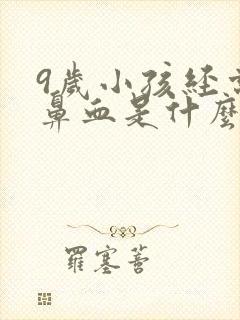 9歲小孩經常
鼻血是什麼
羅塞菩